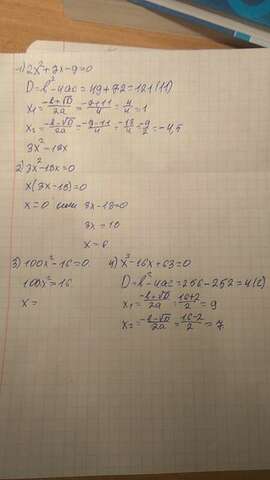 1) 2x²+7x-9=0
D=b²-4ac=49+72=121(11)
x₁=(-b+√D)/2a=(-7+11)/4=4/4=1
x₂=(-b-√D)/2a=(-7-11)/4=-18/4=-9/2=-4,5
3x²-18x
2) 3x²-18x=0
x(3x-18)=0
x=0 или 3x-18=0
3x=18
x=6
3) 100x²-16=0
100x²=16
x=
4) x²-16x+63=0
D=b²-4ac=256-252=4(2)
x₁=(-b+√D)/2a=(16+2)/2=9
x₂=(-b-√D)/2a=(16-2)/2=7